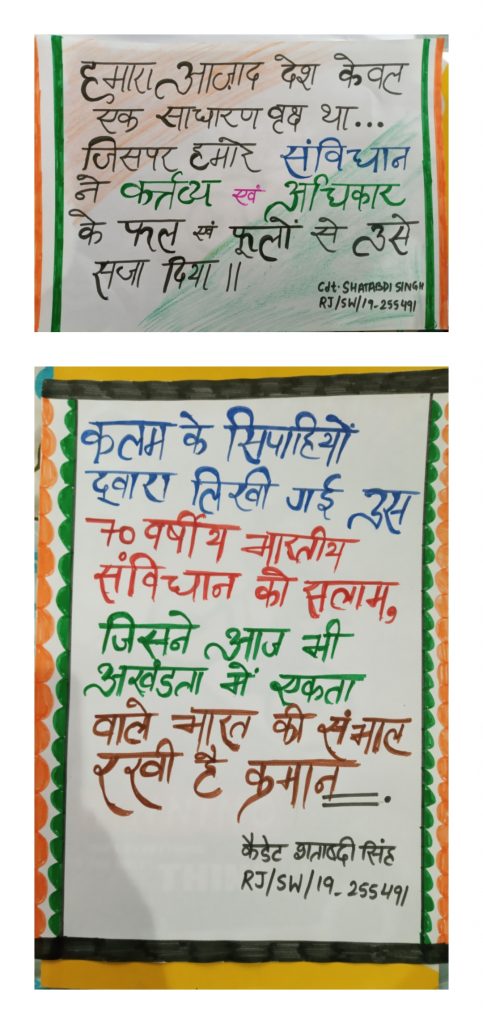 हमारा आज़ाद देश केवल
एक साधारण वृक्ष था...
जिसपर हमारे संविधान
ने कर्त्तव्य एवं अधिकार
के फल एवं फूलों से उसे
सजा दिया ॥
Cdt. SHATABDI SINGH
RJ/SW/19-255491
कलम के सिपाहियों
द्वारा लिखी गई उस
70 वर्षीय भारतीय
संविधान को सलाम,
जिसने आज भी
अखंडता में एकता
वाले भारत की संभाल
रखी है कमान.
कैडेट शताब्दी सिंह
RJ/SW/19-255491